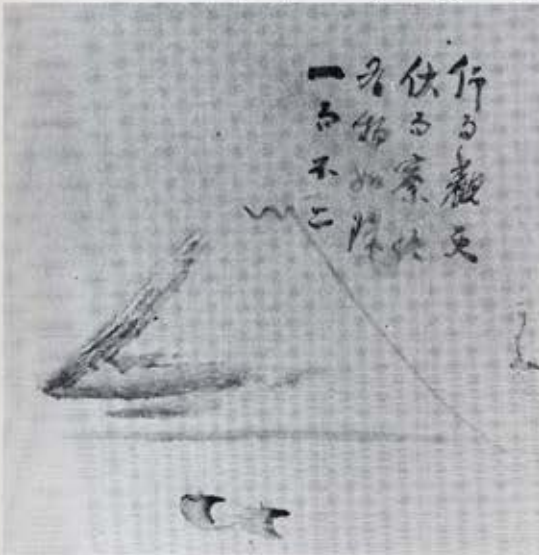 仰而觀天
伏而察地
物如陳
一而不二